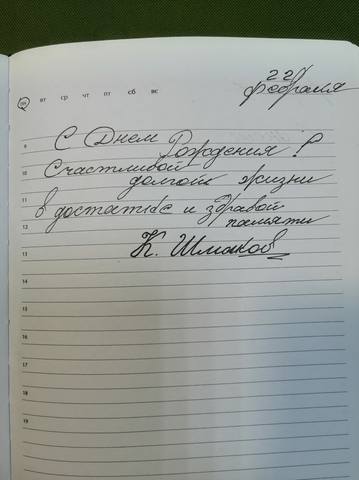 22
февраля
пн вт ср чт пт сб вс
С Днем Рождения!
9
Счастливой
10
долгой жизни
11
в достатке и здравой
памяти
12
К. Шмаков
13
14
15
16
17
18
19